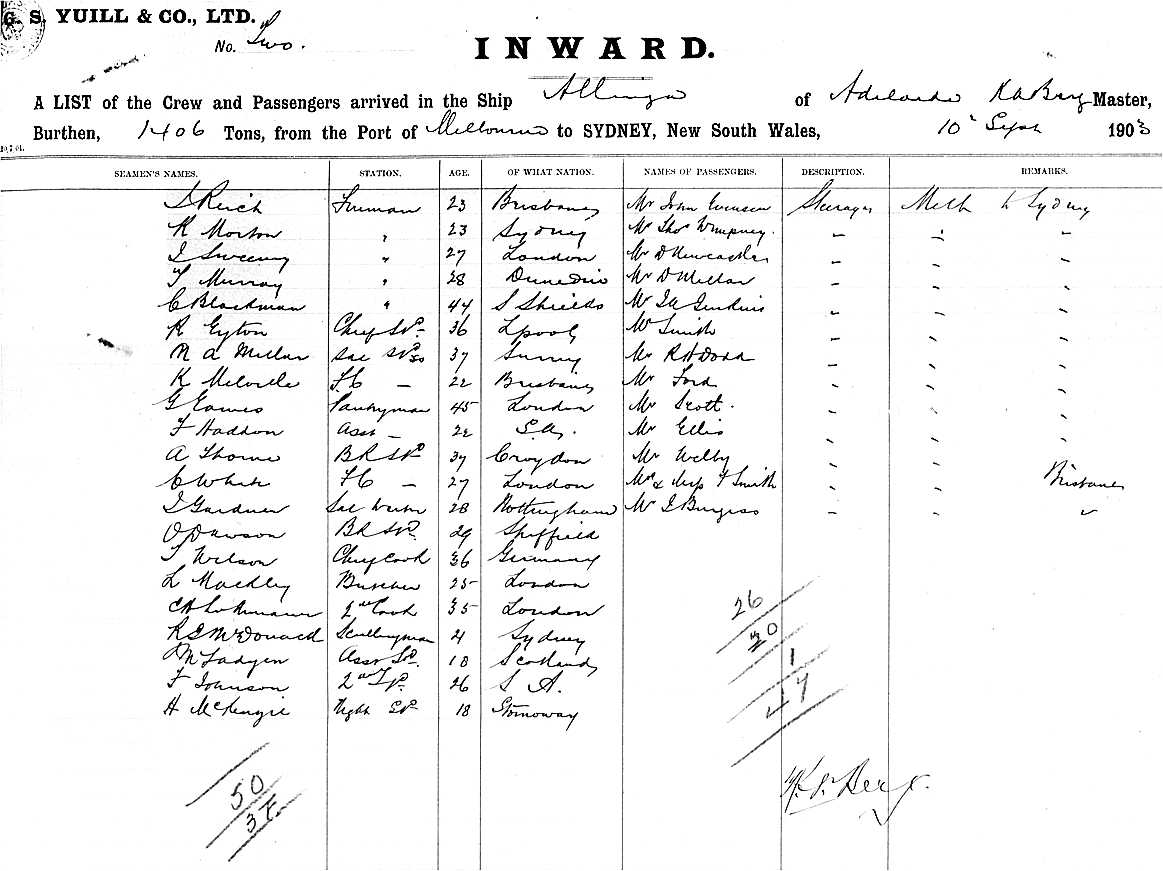 G. S. YUILL & CO., LTD.
No. Two.
INWARD.
A LIST of the Crew and Passengers arrived in the Ship Allinga of Adelaide Master,
Burthen, 1406 Tons, from the Port of Melbourne to SYDNEY, New South Wales, 10 Sept 1903
SEAMEN'S NAMES. STATION. AGE. OF WHAT NATION. NAMES OF PASSENGERS. DESCRIPTION. REMARKS.
Fireman 23 Brisbane Mr John Steerage Melb to Sydney
R Morton " 23 Sydney Mr Thos
J Sweeney " 27 London Mr D Newcastle
T Murray " 28 Dunedin Mr D Mellor
C Blackman " 44 S Shields Mr Jenkins
R Eyton Chief 36 L pool Mr Smith
N A Millar Sal 37 Surrey Mr R H Dodd
K Melville F C — 22 Brisbane Mr Ford
G Eames Pantryman 45 London Mr Scott.
F Haddon Asst — 22 S.A. Mr Ellis
A Thorne B R 37 Croydon Mr Welby
C White F C — 27 London & Miss F Smith Brisbane
J Gardner Sal 28 Nottingham Mr J Burgess
O Dawson B R 29 Sheffield
T Wilson Chief Cook 36 Germany
L Butcher 25 London
2nd Cook 35 London
McDonald Sculleryman 21 Sydney
Asst 18 Scotland
F Johnson 2nd 26 S A.
H McKenzie Night 18 Stornoway
26
20
1
47
50
37